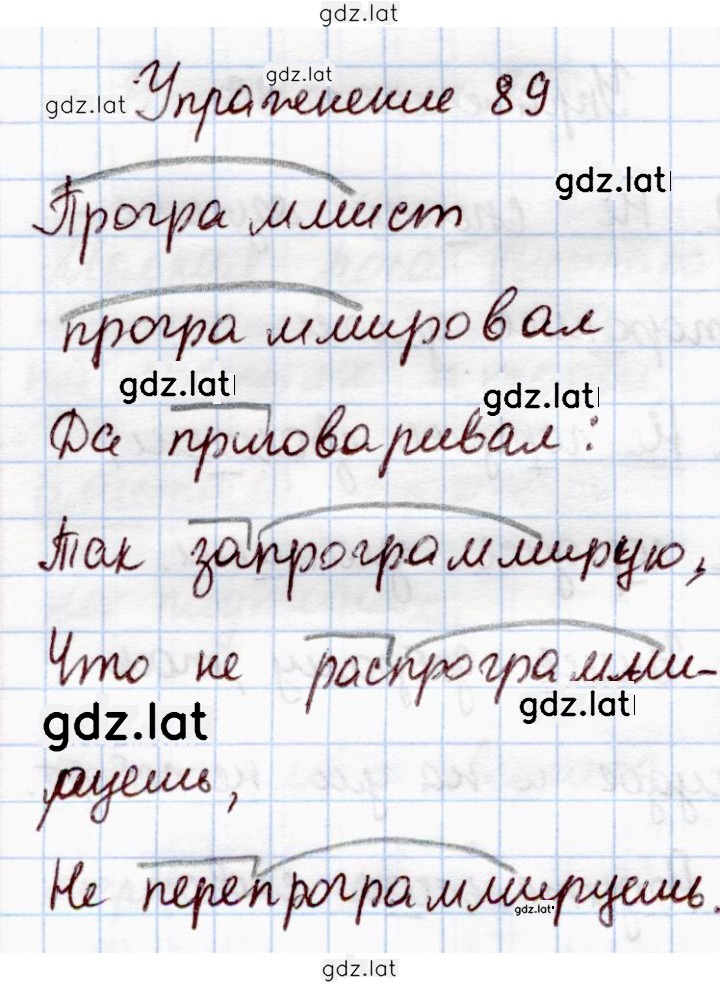 gdz.lat
gdz.lat
gdz.lat Упражнение 89
gdz.lat
Программист
программировал
gdz.lat gdz.lat
Да приговаривал:
Так запрограммирую,
Что не распрограмми-
gdz.lat gdz.lat
руешь,
Не перепрограммируешь.
gdz.lat
gdz.lat